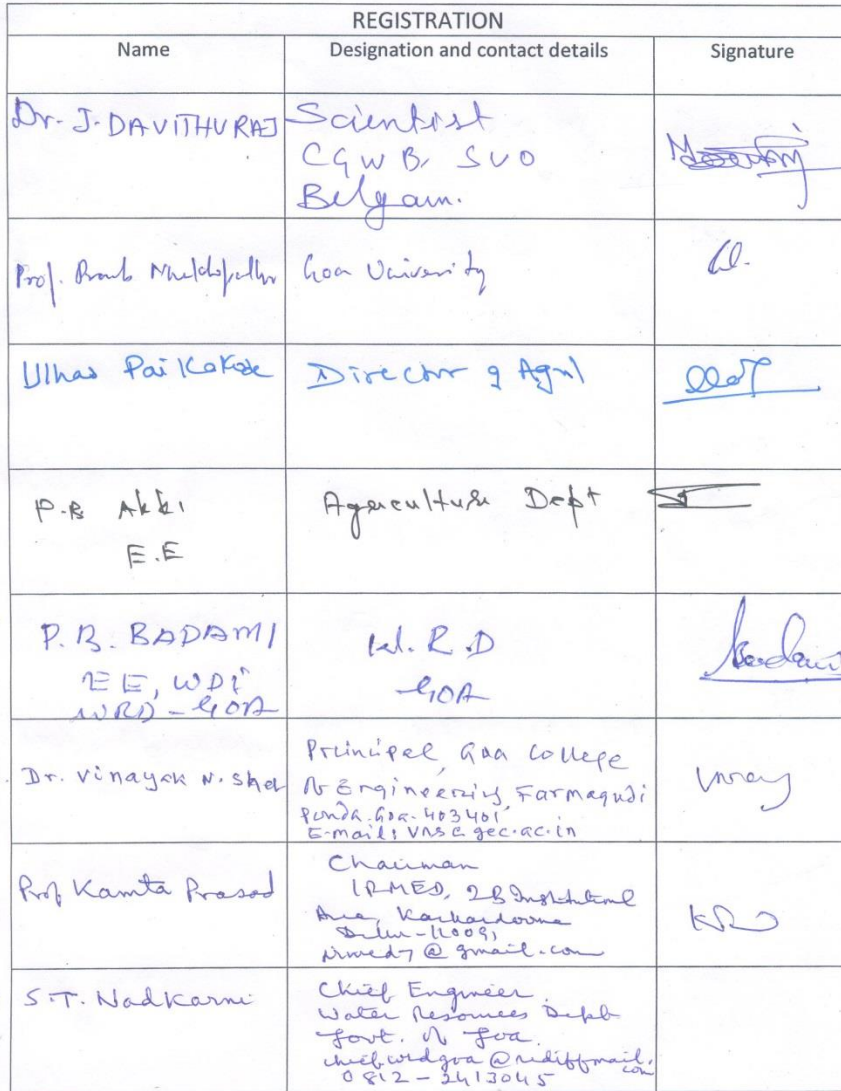 REGISTRATION
Name Designation and contact details Signature
Dr. J. DAVITHURAJ Scientist
CGWB, SUO
Belgam.
Prof. Goa University
Ulhas Pai Kakode Director of Agri
P.B Akki Agriculture Dept
E.E
P.B. BADAMI W.R.D
GOA
EE, WDI
WRD - GOA
Dr. Vinayak N. Shet Principal, Goa College
of Engineering, Farmagudi
Ponda. Goa. 403401,
E-mail: vns@gec.ac.in
Prof Kamta Prasad Chairman
IRMED, 2B Institutional
Area, Karkardooma
Delhi-110091
irmed7@gmail.com
S.T. Nadkarni Chief Engineer
Water Resources Dept
Govt. of Goa
chiefwrdgoa@rediffmail.com
0812-2413045